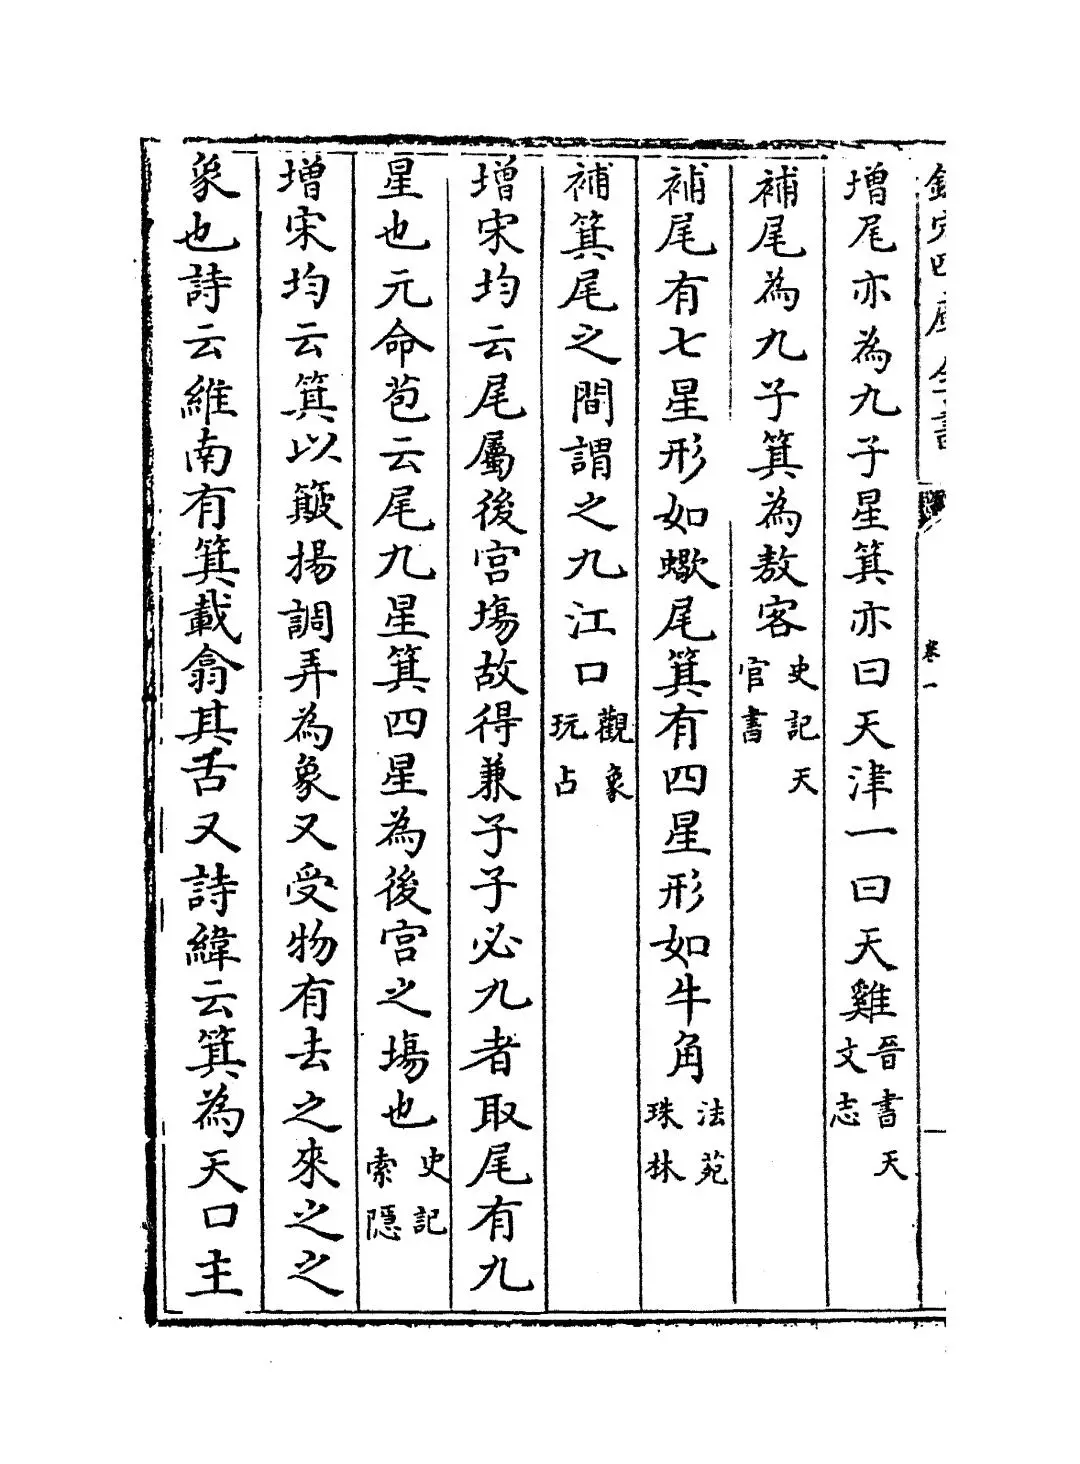 欽定四庫全書
卷一
增尾亦為九子星箕亦曰天津一曰天雞晉書天文志
補尾為九子箕為敖客史記天官書
補尾有七星形如蠍尾箕有四星形如牛角法苑珠林
補箕尾之間謂之九江口觀象玩占
增宋均云尾屬後宮塲故得兼子子必九者取尾有九
星也元命苞云尾九星箕四星為後宮之塲也史記索隱
增宋均云箕以簸揚調弄為象又受物有去之來之之
象也詩云維南有箕載翕其舌又詩緯云箕為天口主